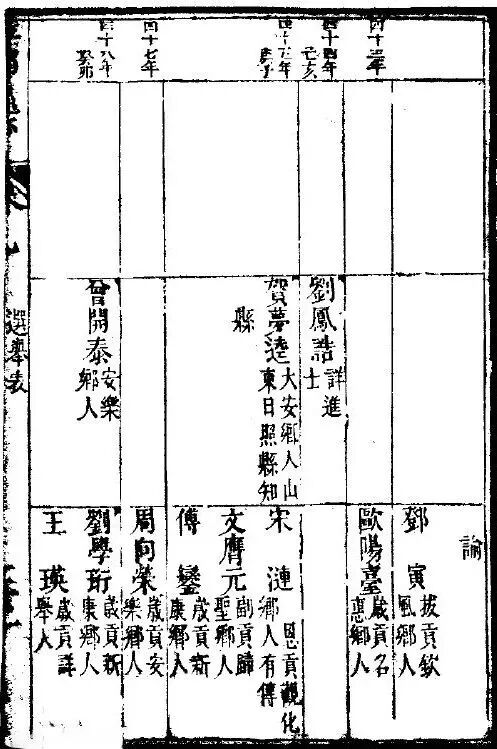 四十三年
四十四年
己亥
四十五年
庚子
四十七年
四十八年
癸卯
劉鳳誥
詳進
士
賀夢逵
大安鄉人山
東日照縣知
縣
曾開泰
安樂
鄉人
諭
鄧寅
拔貢欽
風鄉人
歐陽臺
歲貢名
惠鄉人
宋漣
恩貢觀化
鄉人有傳
文膺元
副貢歸
聖鄉人
傅鑾
歲貢新
康鄉人
周向榮
歲貢安
樂鄉人
劉學珩
歲貢新
康鄉人
王瑛
歲貢詳
舉人
選舉表